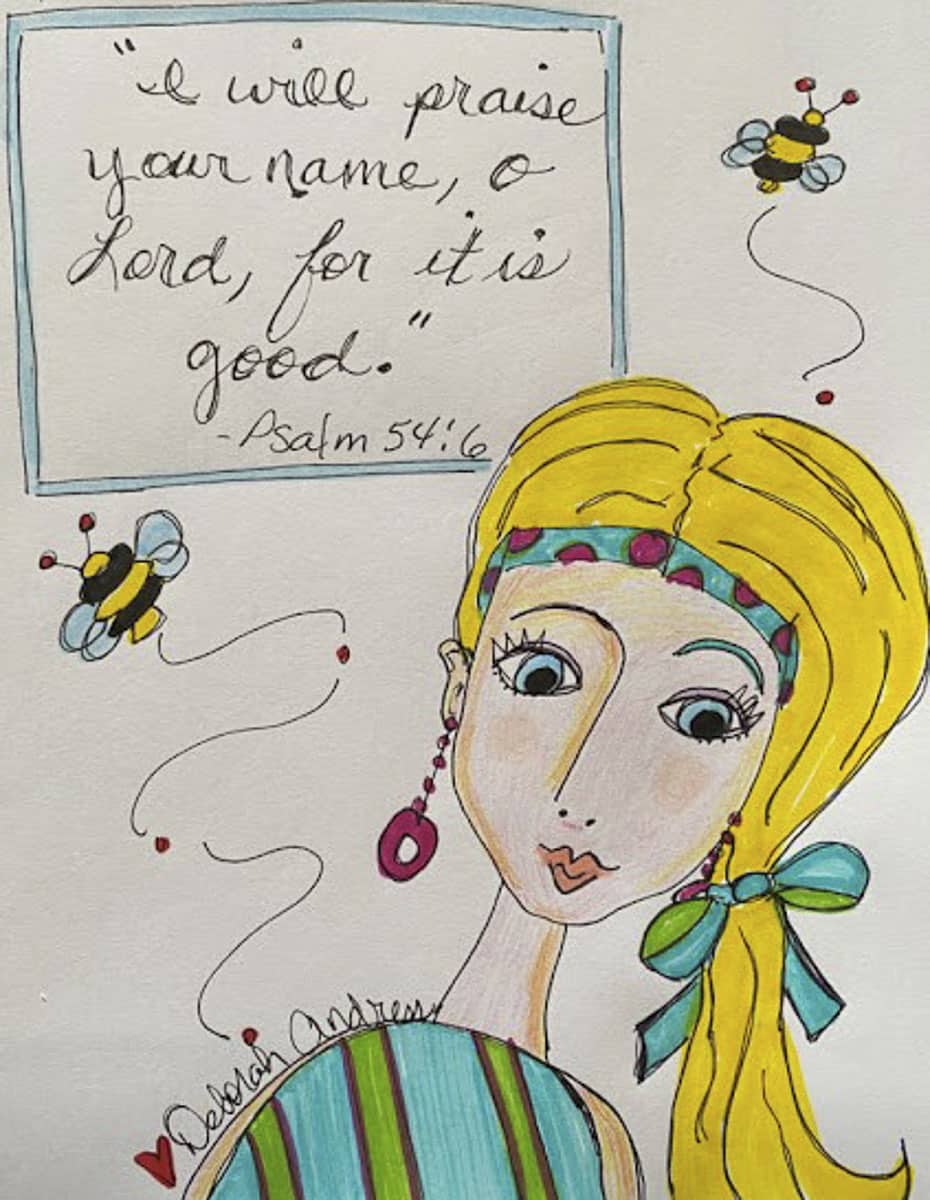 "I will praise
your name, o
Lord, for it is
good."
-Psalm 54:6
Deborah Andress